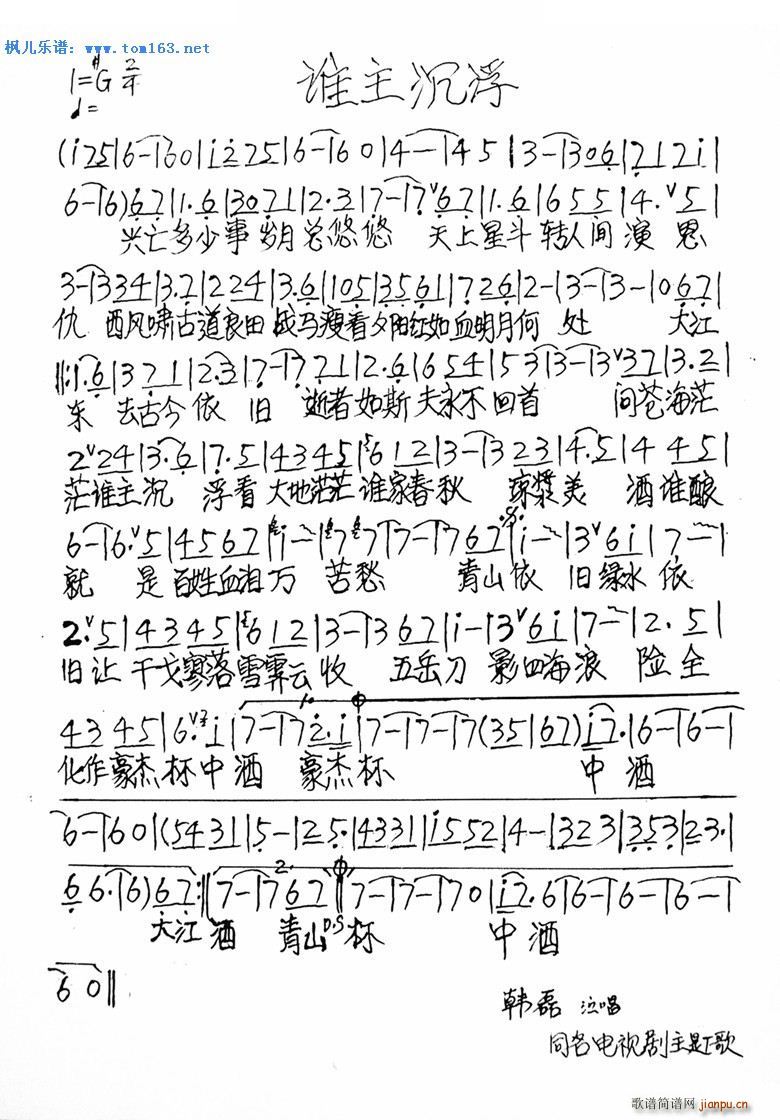 枫儿乐谱：www.tom163.net
1=#G 2/4
谁主沉浮
♩=
(i 2 7 5 | 6 - | 6 0 | i 2 7 5 | 6 - | 6 0 | 4 - | 4 5 | 3 - | 3 0 6 | 7 1 7 i |
6 - | 6) 6 7 | 1. 6 | 3 0 7 1 | 2. 3 | 7 - | 7 ∨ 6 7 | 1. 6 | 6 5 5 | 4. ∨ 5 |
兴亡多少事 岁月总悠悠 天上星斗转人间演恩
3 - | 3 3 4 | 3. 7 | 2 2 4 | 3. 6 | 1 0 5 | 3 5 6 1 | 7 2 6 | 2 - | 3 - | 3 - | 0 6 7 |
仇 西风啸古道良田战马瘦看夕阳红如血明月何处 大江
‖: 1. 6 | 3 7 1 | 2. 3 | 7 - | 7 7 1 | 2. 6 | 6 5 4 | 5 3 | 3 - | 3 ∨ 3 7 | 3. 2 |
东 去古今依旧 逝者如斯夫永不回首 问苍海茫
2 ∨ 2 4 | 3. 6 | 7. 5 | 4 3 4 5 | 6 1 2 | 3 - | 3 2 3 | 4. 5 | 4 4 5 |
茫谁主沉 浮看大地茫茫谁家春秋 琼浆美 酒谁酿
6 - | 6. ∨ 5 | 4 5 6 7 | i - | 7 7 | 7 - | 7 6 7 | i - | 3 ∨ 6 i | 7 - |
就 是百姓血泪万 苦愁 青山依 旧绿水依
2. ∨ 5 | 4 3 4 5 | 6 1 2 | 3 - | 3 6 7 | i - | 3 ∨ 6 i | 7 - | 2. 5 |
旧让干戈寥落雪霁云收 五岳刀 影四海浪 险全
4 3 4 5 | 6. ∨ i | 7 - | 7 2. i | 7 - | 7 - | 7 (3 5 | 6 7) i 7. | 6 - | 6 - |
化作豪杰杯中酒 豪杰杯 中酒
6 - | 6 0 | (5 4 3 1 | 5 - | 2 5. | 4 3 3 1 | i 5 5 2 | 4 - | 3 2 3 | 3 5 3 | 2 3. |
6 6. | 6) 6 7 :‖ 7 - | 7 6 7 ‖ 7 - | 7 - | 7 0 | i 7. 6 | 6 - | 6 - | 6 - |
大江酒 青山 D.S 杯 中酒
6 0 ‖
韩磊 泣唱
同名电视剧主题歌
歌谱简谱网
jianpu.cn